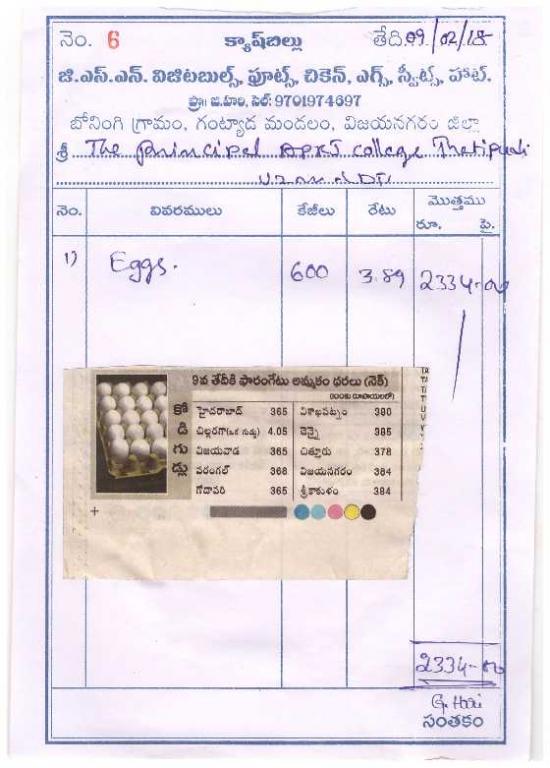 నెం. 6 క్యాష్‌బిల్లు తేది. 09/02/18
జి.ఎస్.ఎన్. విజిటబుల్స్, ఫ్రూట్స్, చికెన్, ఎగ్స్, స్వీట్స్, హాట్.
ప్రొ॥ జి.హరి, సెల్: 9701974697
బోనింగి గ్రామం, గంట్యాడ మండలం, విజయనగరం జిల్లా
శ్రీ The principal APRJ college Thatipudi
నెం. వివరములు కేజీలు రేటు మొత్తము
రూ. పై.
1) Eggs. 600 3.89 2334-00
9వ తేదీకి ఫారంగేటు అమ్మకం ధరలు (నెక్)
(100కు రూపాయలలో)
కోడిగుడ్లు
హైదరాబాద్ 365 విశాఖపట్నం 380
చిల్లరగా(ఒక గుడ్డు) 4.05 చెన్నై 385
విజయవాడ 365 చిత్తూరు 378
వరంగల్ 368 విజయనగరం 384
గోదావరి 365 శ్రీకాకుళం 384
2334-00
G. Hari
సంతకం